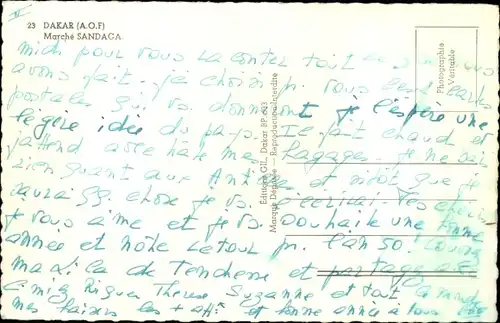 23 DAKAR (A.O.F)
Marché SANDAGA.
Photographie
Véritable
Editions GIL, Dakar BP.
Marque Déposée — Reproduction interdite
midi pour vous raconter tout ce que
avons fait. j'ai choisi pr. vous cartes
postales qui vs. donneront je l'espère une
légère idée du pays. Il fait chaud et
j'attend avec hâte mes bagages. je ne sais
rien quant aux Antilles et sitôt que je
saurai qq. chose je vs. l'écrirai.
je vous aime et je vs. souhaite une bonne
année et notre retour pr. l'an 50.
de tendresse et
Thérèse Suzanne et tout
mes baisers les + affs et bonne année à tous